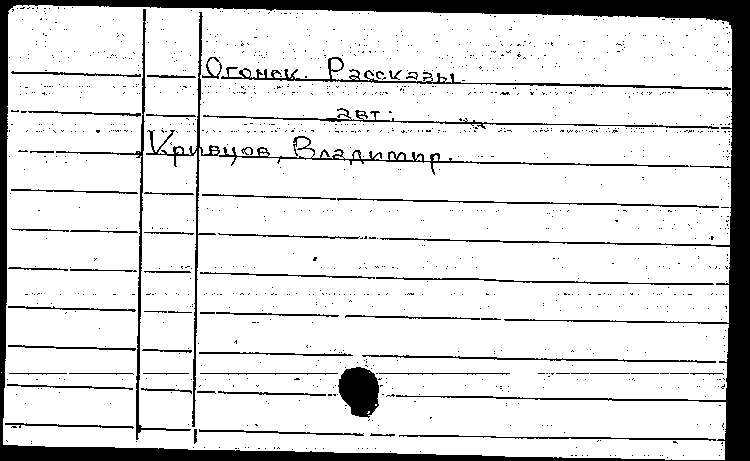 Огонек. Рассказы.
авт:
Кривцов, Владимир.